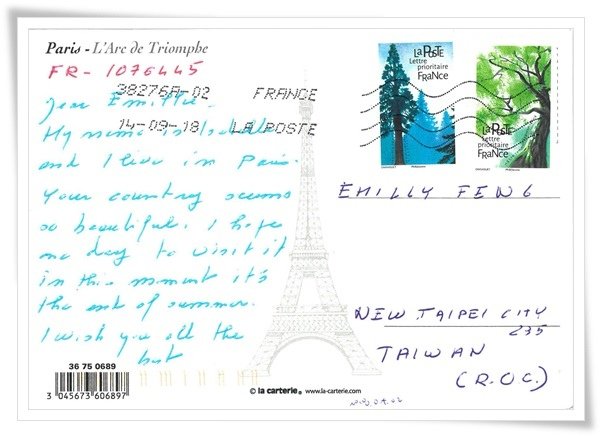 Paris - L'Arc de Triomphe
FR - 1076445
38276A-02 FRANCE
14-09-18 LA POSTE
Dear Emillie.
My name is
and I live in Paris.
Your country seems
so beautiful. I hope
one day to visit it
in this moment it's
the end of summer.
I wish you all the
best
36 75 0689
3 045673 606897
LA POSTE
Lettre
prioritaire
FRANCE
LA POSTE
Lettre
prioritaire
FRANCE
EMILLY FENG
NEW TAIPEI CITY
235
TAIWAN
(R.O.C.)
© la carterie ® www.la-carterie.com